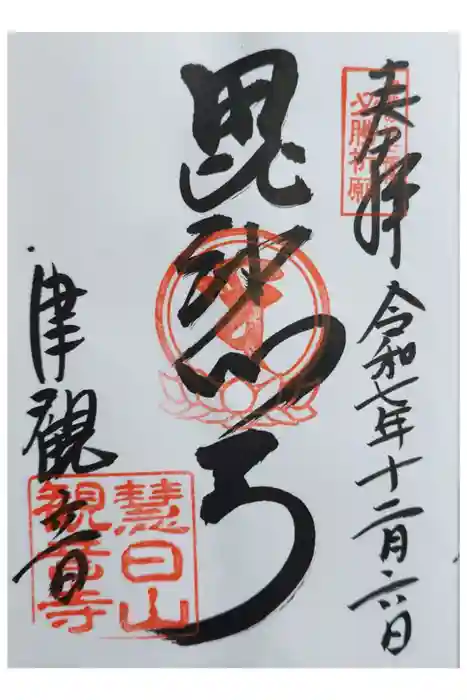 奉拝
必勝祈願
令和七年十二月六日
毘沙門天
津觀音
慧日山
観音寺